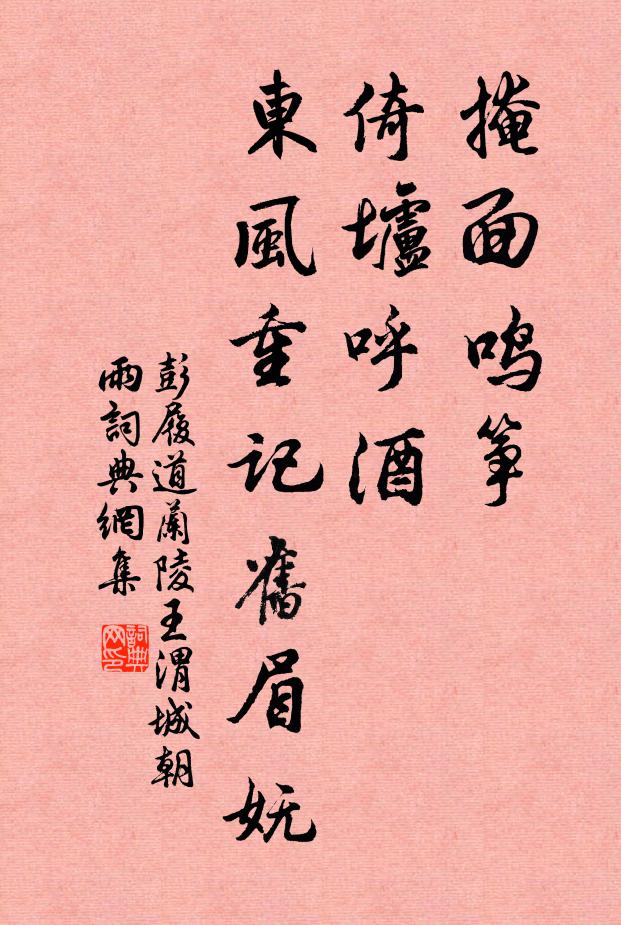 掩面鸣筝
倚壚呼酒
東風重記舊眉妩
彭履道蘭陵王渭城朝
雨詞典網集
詞典
网印